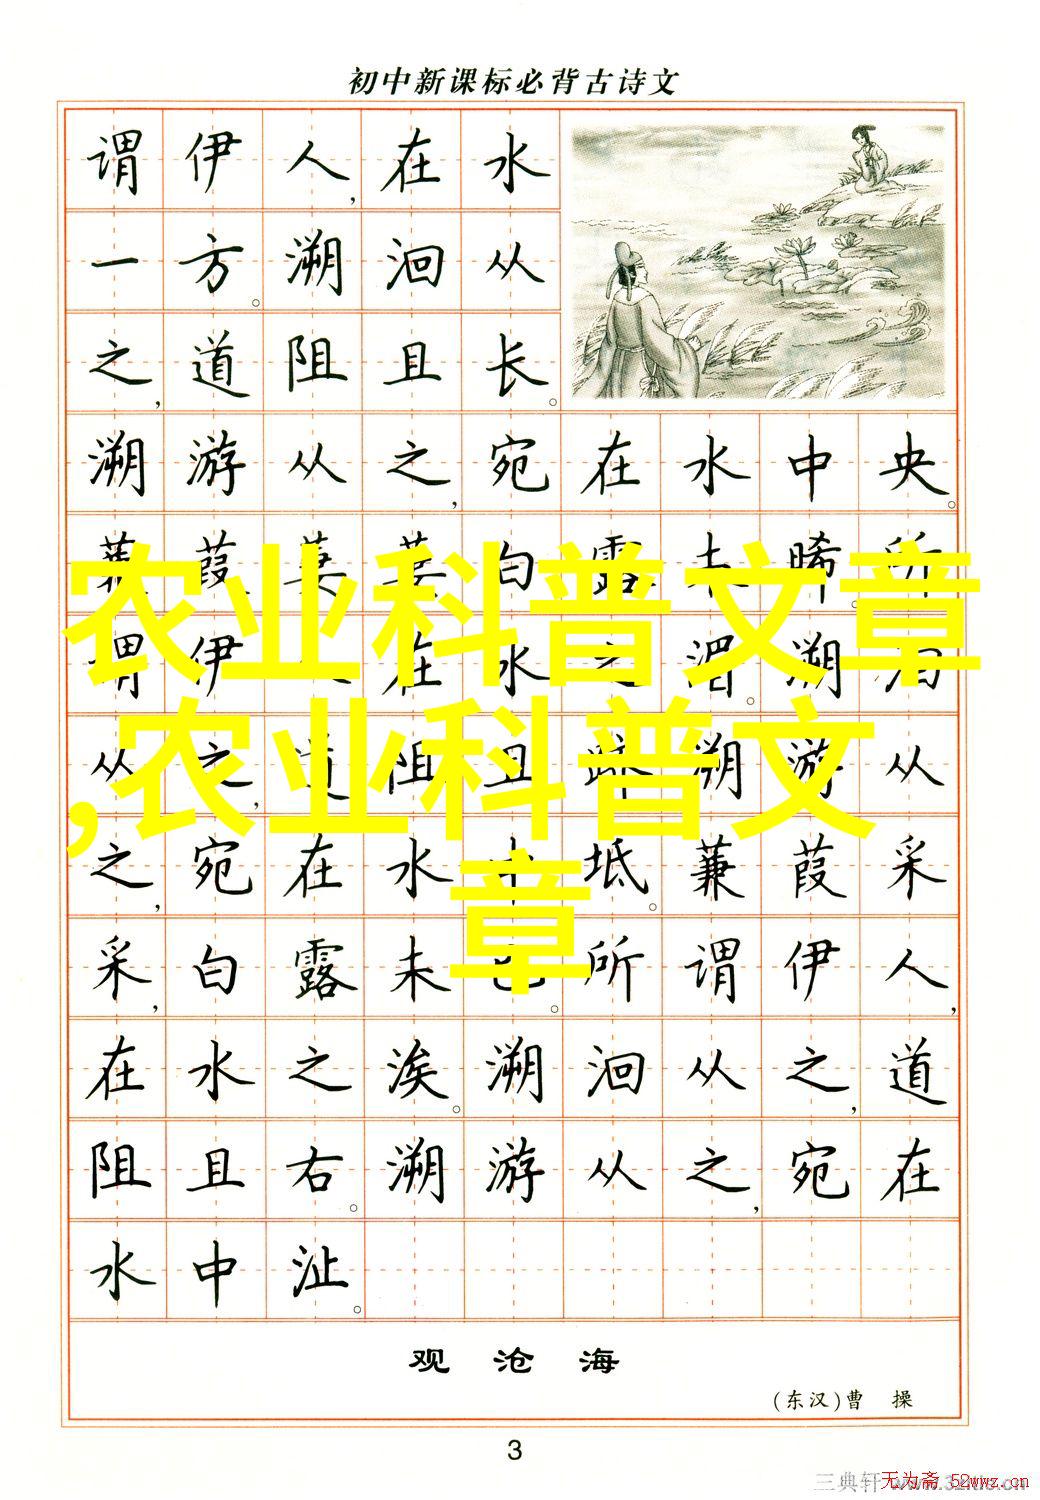 初中新课标必背古诗文
谓伊人,在水
一方。溯洄从
之,道阻且长。
溯游从之,宛在水中央。
蒹葭萋萋,白露未晞。所
谓伊人,在水之湄。溯洄
从之,道阻且跻。溯游从
之,宛在水中坻。蒹葭采
采,白露未已。所谓伊人,
在水之涘。溯洄从之,道
阻且右。溯游从之,宛在
水中沚。
农业科普文章
,农业科普文
章
观沧海
(东汉)曹 操
3
三典轩
无为斋 52wwz.cn